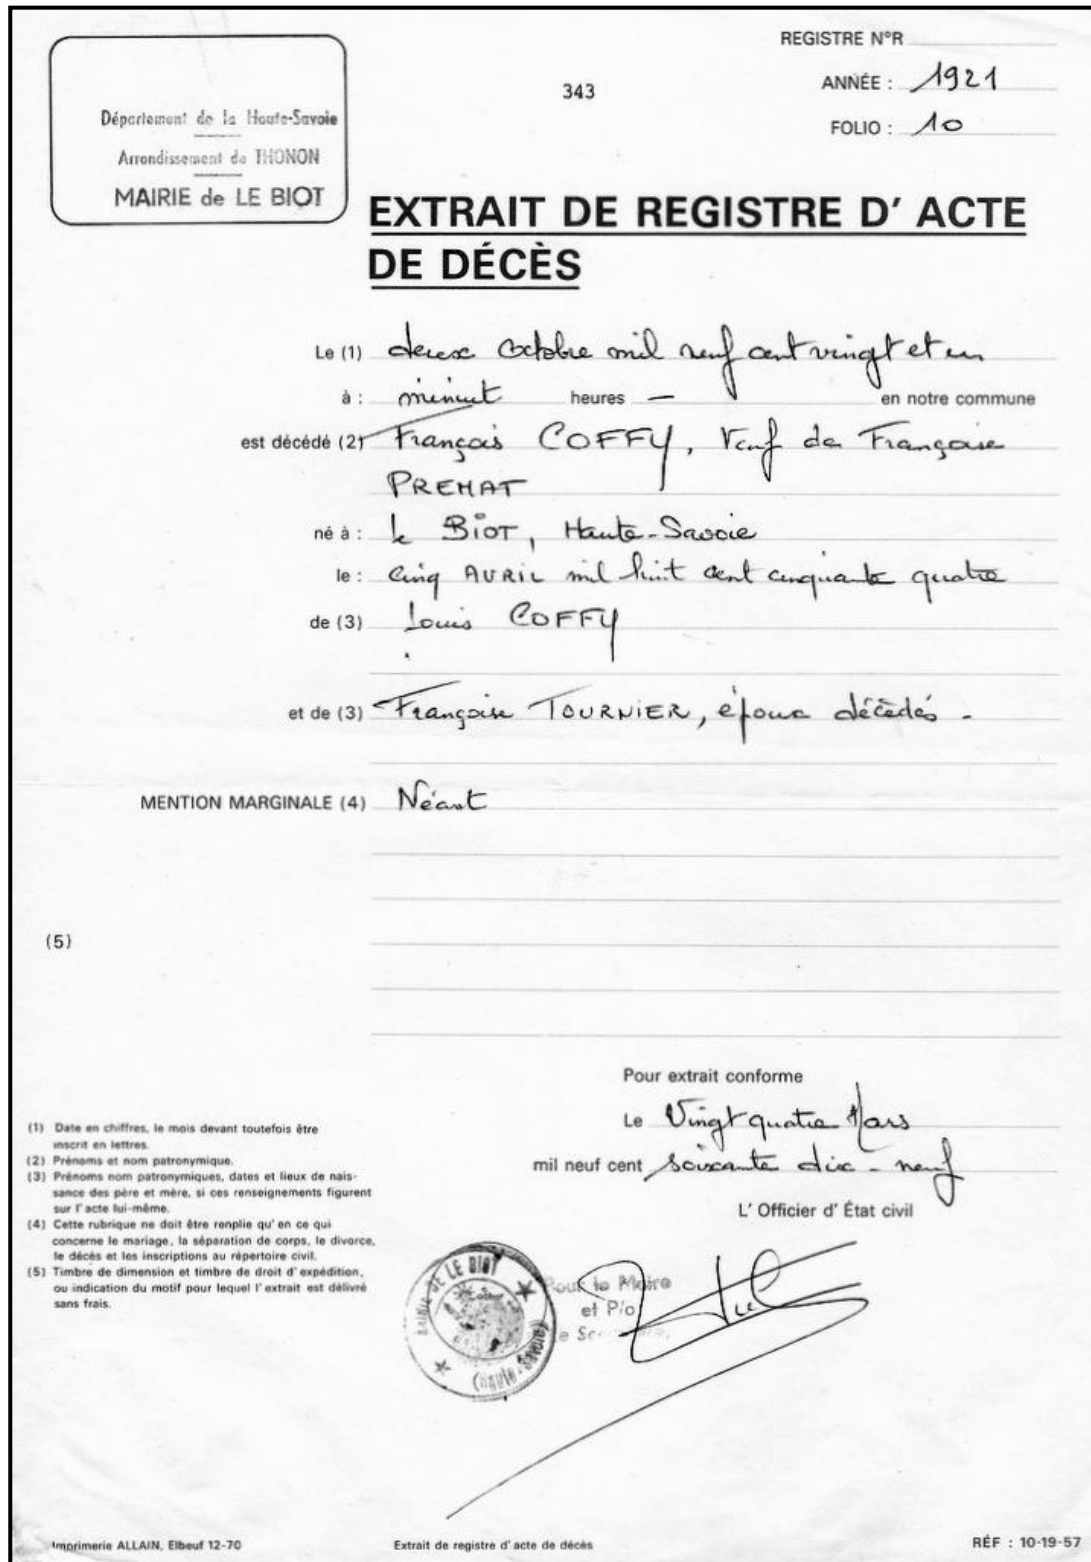 REGISTRE N°R
Département de la Haute-Savoie
Arrondissement de THONON
MAIRIE de LE BIOT
343
ANNÉE : 1921
FOLIO : 10
EXTRAIT DE REGISTRE D' ACTE
DE DÉCÈS
Le (1) deux octobre mil neuf cent vingt et un
à : minuit heures — en notre commune
est décédé (2) François COFFY, Veuf de Françoise
PREMAT
né à : le BIOT, Haute-Savoie
le : cinq AVRIL mil huit cent cinquante quatre
de (3) Louis COFFY
et de (3) Françoise TOURNIER, époux décédés -
MENTION MARGINALE (4) Néant
(5)
Pour extrait conforme
Le Vingt quatre Mars
mil neuf cent soixante dix - neuf
L' Officier d' État civil
(1) Date en chiffres, le mois devant toutefois être
inscrit en lettres.
(2) Prénoms et nom patronymique.
(3) Prénoms nom patronymiques, dates et lieux de nais-
sance des père et mère, si ces renseignements figurent
sur l' acte lui-même.
(4) Cette rubrique ne doit être renplie qu' en ce qui
concerne le mariage, la séparation de corps, le divorce,
le décès et les inscriptions au répertoire civil.
(5) Timbre de dimension et timbre de droit d' expédition,
ou indication du motif pour lequel l' extrait est délivré
sans frais.
MAIRIE DE LE BIOT
(Haute-Savoie)
Pour le Maire
et P/o
Imprimerie ALLAIN, Elbeuf 12-70
Extrait de registre d' acte de décès
RÉF : 10-19-57